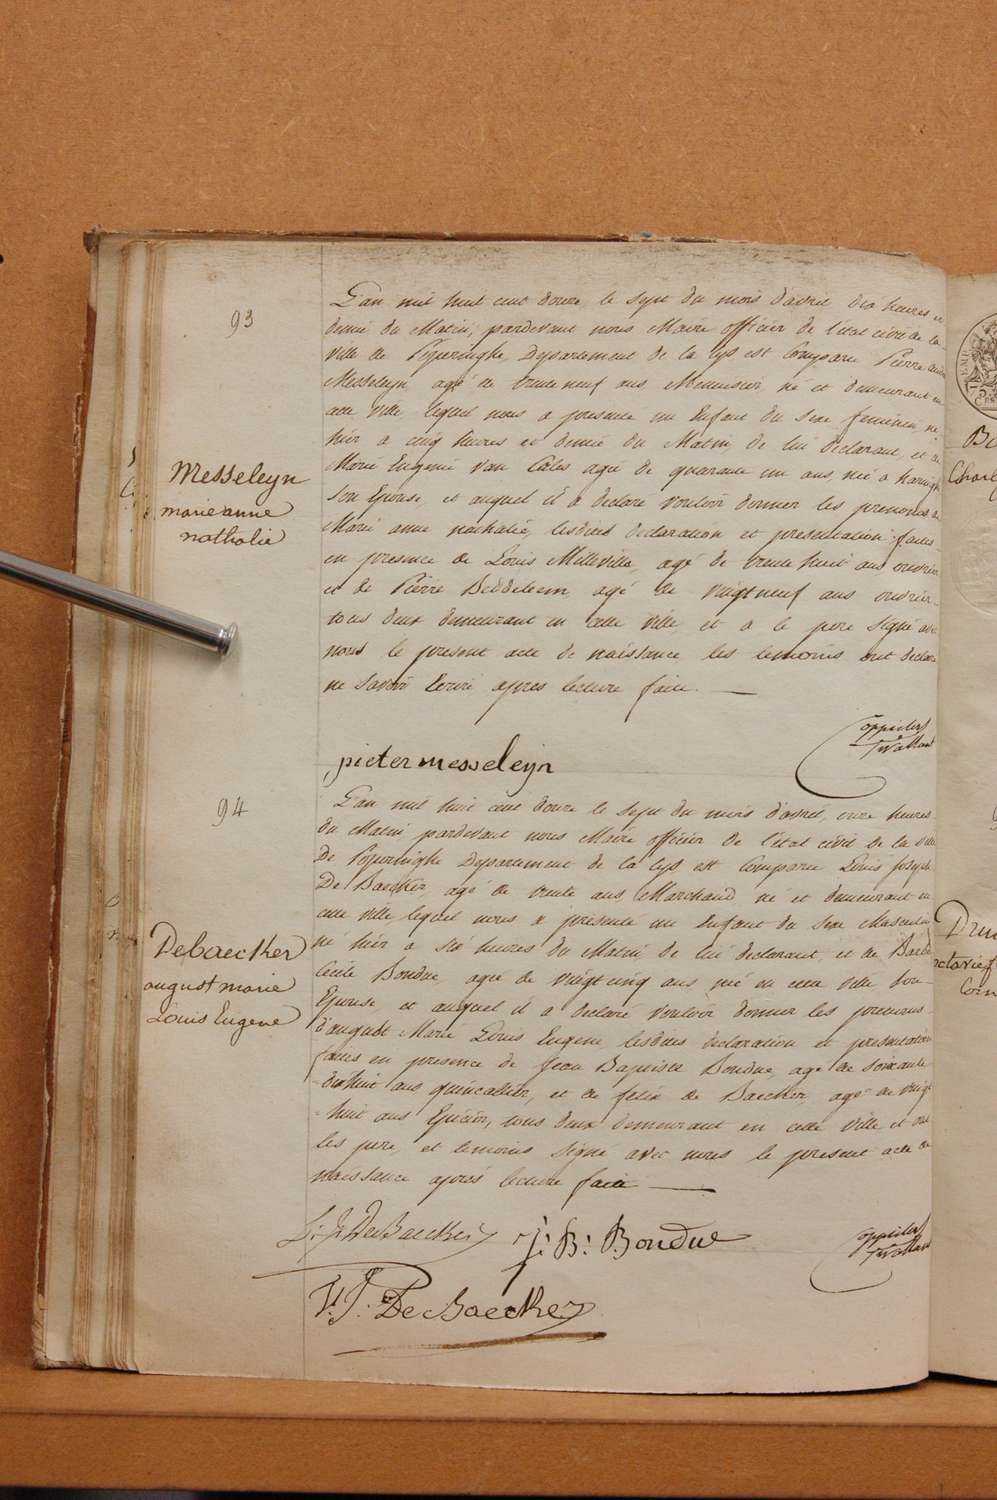 93
L'an mil huit cent douze le sept du mois d'avril dix heures et
demie du Matin, pardevant nous Maire officier de l'état civil de la
ville de Poperinghe Departement de la Lys est Comparu Pierre
Messeleyn agé de trente neuf ans Menuisier, né et demeurant en
cette ville lequel nous a presenté un Enfant du sexe feminin né
hier a cinq heures et demie du Matin, de lui declarant, et de
Marie Eugenie Van Cales agé de quarante un ans, née a haringhe
Son Epouse, et auquel il a declaré vouloir donner les prenoms de
Marie anne nathalie, lesdites declaration et presentation faites
en presence de Louis Milleville, agé de trente huit ans ouvrier
et de Pierre Beddeleem, agé de vingt neuf ans ouvrier
tous deux demeurant en cette ville, et a le pere Signé avec
nous le present acte de naissance les temoins ont declaré
ne savoir Ecrire apres lecture faite.
Messeleyn
marie anne
nathalie
pieter messeleyn
94
L'an mil huit cent douze le sept du mois d'avril, onze heures
du Matin pardevant nous Maire officier de l'état civil de la ville
De Poperinghe Departement de la Lys est Comparu Louis Joseph
De Baecker, agé de trente ans Marchand né et demeurant en
cette ville lequel nous a presenté un Enfant du Sexe Masculin
né hier a six heures du Matin, de lui declarant, et de Barbe
Cecile Bondue, agé de vingt cinq ans né en cette ville Son
Epouse et auquel il a declaré vouloir donner les prenoms
d'august Marie Louis Eugene lesdites declaration et presentation
faites en presence de Jean Baptiste Bondue, agé de soixante
dix huit ans quincallier, et de felix de Baecker, agé de vingt
huit ans Epicier, tous deux demeurant en cette ville et ont
les pere, et temoins Signé avec nous le present acte de
naissance après lecture faite
Debaecker
august marie
Louis Eugene
L: J: DeBaecker
J: B: Bondue
F: J. De Baecker